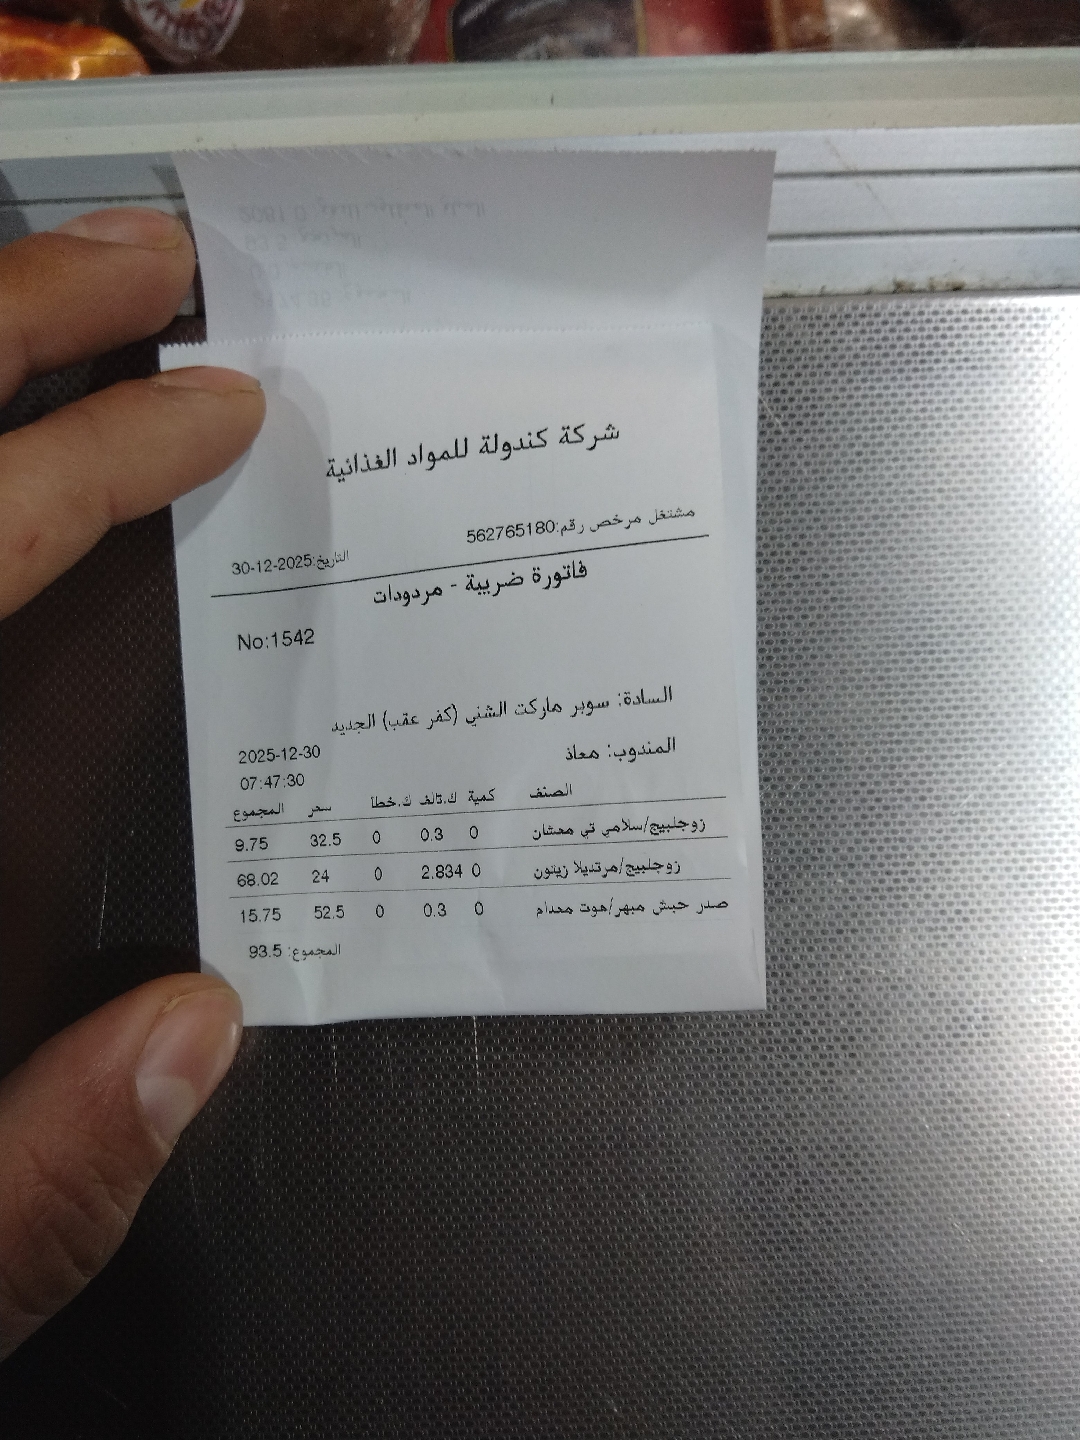 شركة كندولة للمواد الغذائية
مشتغل مرخص رقم:562765180
التاريخ:30-12-2025
فاتورة ضريبة - مردودات
No:1542
السادة: سوبر ماركت الشني (كفر عقب) الجديد
2025-12-30
المندوب: معاذ
07:47:30
الصنف كمية ك.تالف ك.خطا سعر المجموع
زوجلبيج/سلامي تي معشان 0 0.3 0 32.5 9.75
زوجلبيج/مرتديلا زيتون 0 2.834 0 24 68.02
صدر حبش مبهر/هوت معدام 0 0.3 0 52.5 15.75
المجموع: 93.5